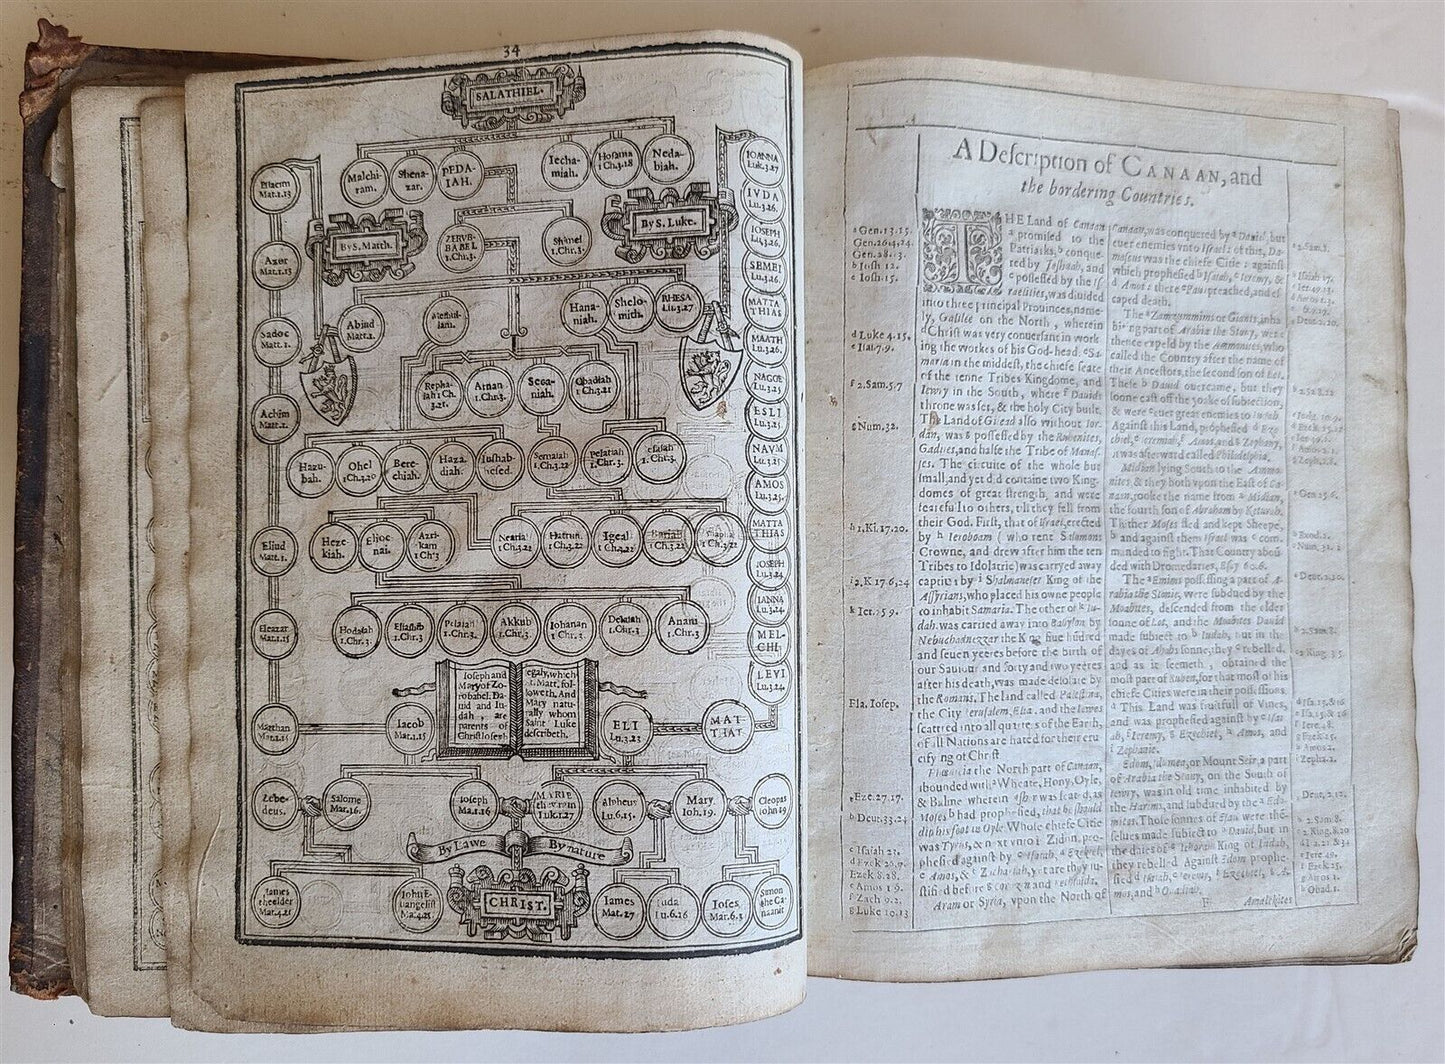 34
SALATHIEL.
Malchi-
ram.
Shena-
zar.
PEDA-
IAH.
Iecha-
miah.
Hosama
1 Ch.3.18
Neda-
biah.
By S. Matth.
ZERVB-
BABEL
1 Ch.3.
Shimei
1.Chr.3.
By S. Luke.
Eliacim
Mat.1.13
Azor
Mat.1.13
Sadoc
Matt.1.
Achim
Matt.1.
Eliud
Matt.1.
Eleazar
Mat.1.15
Matthan
Mat.1.15
Abiud
Matt.1.
Meshul-
lam.
Hana-
niah.
Shelo-
mith.
RHESA
Lu.3.27
Repha-
iah 1 Ch.
3.21.
Arnan
1.Chr.3.
Seca-
niah.
Obadiah
1.Ch.3.21
Hazu-
bah.
Ohel
1Ch.3.20
Bere-
chiah.
Haza
diah.
Iushab-
hesed.
Semaiah
1.Ch.3.22
Pelatiah
1.Chr.3.
Iesaiah
1.Chr.3.
Heze-
kiah.
Elioe-
nai.
Azri-
kam
1 Ch'3
Nearia
1 Ch.3.22
Hattun.
Igeal
1 Ch.3.22
Bariah
1 Ch.3.22
Hodaiah
1.Chr.3.
Eliashib
1 Chr.3
Pelaiah
1 Chr.3.
Akkub
1 Chr.3.
Iohanan
1 Chr.3.
Delaiah
1 Chr.3
Anani
1 Chr.3
IOANNA
Luk.3.27
IVDA
Lu.3.26.
IOSEPH
Lu.3.26.
SEMEI
Lu.3.26.
MATTA
THIAS
MAATH
Lu.3.26.
NAGGE
Lu.3.25
ESLI
Lu.3.25
NAVM
Lu.3.25
AMOS
Lu.3.25.
MATTA
THIAS
IOSEPH
Lu.3.24
IANNA
Lu.3.24.
MEL-
CHI
LEVI
Lu.3.24.
Iacob
Mat.1.15
Ioseph and
Mary of Zo-
robabel. Da-
uid and Iu-
dah, are
parents of
Christ Ioseph
legaly, which
S. Matt. fol-
loweth. And
Mary natu-
rally whom
Saint Luke
describeth.
ELI
Lu.3.23
MAT-
THAT.
Zebe-
deus.
Salome
Mar.16.
Ioseph
Ma.1.16
MARIE
Luk.1.27
Alpheus
Lu.6.15.
Mary
Ioh.19.
Cleopas
Iohn 19
By Lawe
By nature
Iames
the elder
Mat.4.21
Iohn E-
uangelist
Ma.4.21
CHRIST.
Iames
Mat.27
Iuda
Lu.6.16
Ioses
Mar.6.3
Simon
the Ca-
naanite
A Description of CANAAN, and
the bordering Countries.
THE Land of Canaan
a promised to the
Patriarks, b conque-
red by Joshuah, and
c possessed by the Is
raelities, was diuided
into three principal Prouinces, name-
ly, Galilee on the North, wherein
d Christ was very conuersant in work
ing the workes of his God-head. e Sa-
maria in the middest, the chiefe seate
of the tenne Tribes Kingdome, and
Iewry in the South, where f Dauids
throne was set, & the holy City built.
The Land of Gilead also without Ior-
dan, was g possessed by the Rubenites,
Gadites, and halfe the Tribe of Manas-
ses. The circuite of the whole but
small, and yet did containe two King-
domes of great strength, and were
fearefull to others, till they fell from
their God. First, that of Israel, erected
by h Ieroboam ( who rent Salomons
Crowne, and drew after him the ten
Tribes to Idolatrie) was carryed away
captiue by i Shalmaneser King of the
Assyrians, who placed his owne people
to inhabit Samaria. The other of k Iu-
dah was carried away into Babylon by
Nebuchadnezzar the King fiue hūdred
and seuen yeeres before the birth of
our Sauiour and forty and two yeeres
after his death, was made desolate by
the Romans. The land called Palestina,
the City Ierusalem, Elia, and the Iewes
scattred into all quarters of the Earth,
of all Nations are hated for their cru
cifying of Christ
Phœnicia the North part of Canaan,
abounded with a Wheate, Hony, Oyle,
& Balme wherein Asher was seated, as
Moses b had prophesied, that he should
dip his foot in Oyle Whose chiefe Citie
was Tyrus, & next vnto it Zidon, pro-
phesied against by c Isaiah, d Ezekiel,
e Amos, & f Zachariah, yet are they iu-
stified before g Corazin and Bethsaida.
Aram or Syria, vpon the North of
a Gen.13.15.
Gen.26.4,24.
Gen.28.13.
b Iosh 12.
c Iosh.15.
d Luke 4.15.
e Isai.7.9.
f 2.Sam.5.7
g Num.32.
h 1.Ki.17.20.
i 2.K 17.6,24
k Ier.25 9.
Fla. Iosep.
a Eze.27.17.
b Deut.33.24
c Isaiah 23.
d Ezek 26,9.
Ezek 8.28.
e Amos 1 9.
f Zach 9.2.
g Luke 10.13
Canaan, was conquered by a Dauid, but
euer enemies vnto Israel: of this, Da-
mascus was the chiefe Citie: against
which prophesied b Isaiah, c Ieremy, &
d Amos: there e Paul preached, and es
caped death.
The a Zamzummims or Giants, inha
biting part of Arabia the Stony, were
thence expeld by the Ammonites, who
called the Country after the name of
their Ancestors, the second son of Lot.
These b Dauid ouercame, but they
soone cast off the yoake of subiection,
& were c euer great enemies to Iudah
Against this Land, prophesied d Eze
chiel, e Ieremiah, f Amos, and g Zephany,
it was afterward called Philadelphia.
Midian lying South to the Ammo-
nites & they both vpon the East of Ca-
naan, tooke the name from a Midian,
the fourth son of Abraham by Keturah.
Thither Moses fled and kept Sheepe,
b and against them Israel was c com-
manded to fight. That Country aboū
ded with Dromedaries, Esay 60.6.
The a Emims possessing a part of A-
rabia the Stonie, were subdued by the
Moabites, descended from the elder
sonne of Lot, and the Moabites Dauid
made subiect to b Iudah, but in the
dayes of Ahabs sonne, they c rebelled.
and as it seemeth, obtained the
most part of Ruben, for that most of his
chiefe Cities were in their possessions.
d This Land was fruitfull of Vines,
and was prophesied against by e Isai
ah, f Ieremy, g Ezechiel, h Amos, and
i Zephanie.
Edom, Idumea, or Mount Seir, a part
of Arabia the Stony, on the South of
Iewry, was in old time inhabited by
the Harims, and subdued by the a Edo-
mites. Those sonnes of Esau were the-
selues made subiect to b Dauid, but in
the daies of c Iehoram King of Iudah,
they rebelled Against Edom prophe-
sied d Isaiah, e Ieremy, f Ezechiel, g A-
mos, and h Obadiah.
F
Amalekites
a 2.Sam.8.
b Isaiah 17.
c Ier.49.23
d Amos 1.3.
a Deut.2.20.
b 2 Sa.8.12
c Iudg.10.9.
d Ezek.25.22
e Ier.49.1.
f Amos 1.
g Zeph.2.8.
a Gen 25.6.
b Exod.2.
c Num.31.2
a Deut.2.10.
b 2 Sam.8.
c 2 King.3.5.
d Isa.15.8.16
e Isa.15.& 16
f Ier.48.
g Ezek.25.
h Amos 2.
i Zepha.2.
a Deut.2.12.
b 2.Sam 8.
c 2.King.8.20
d I.21.21 & 34
e Ier.49.
f Ezek.25.
g Amos 1.
h Obad.1.